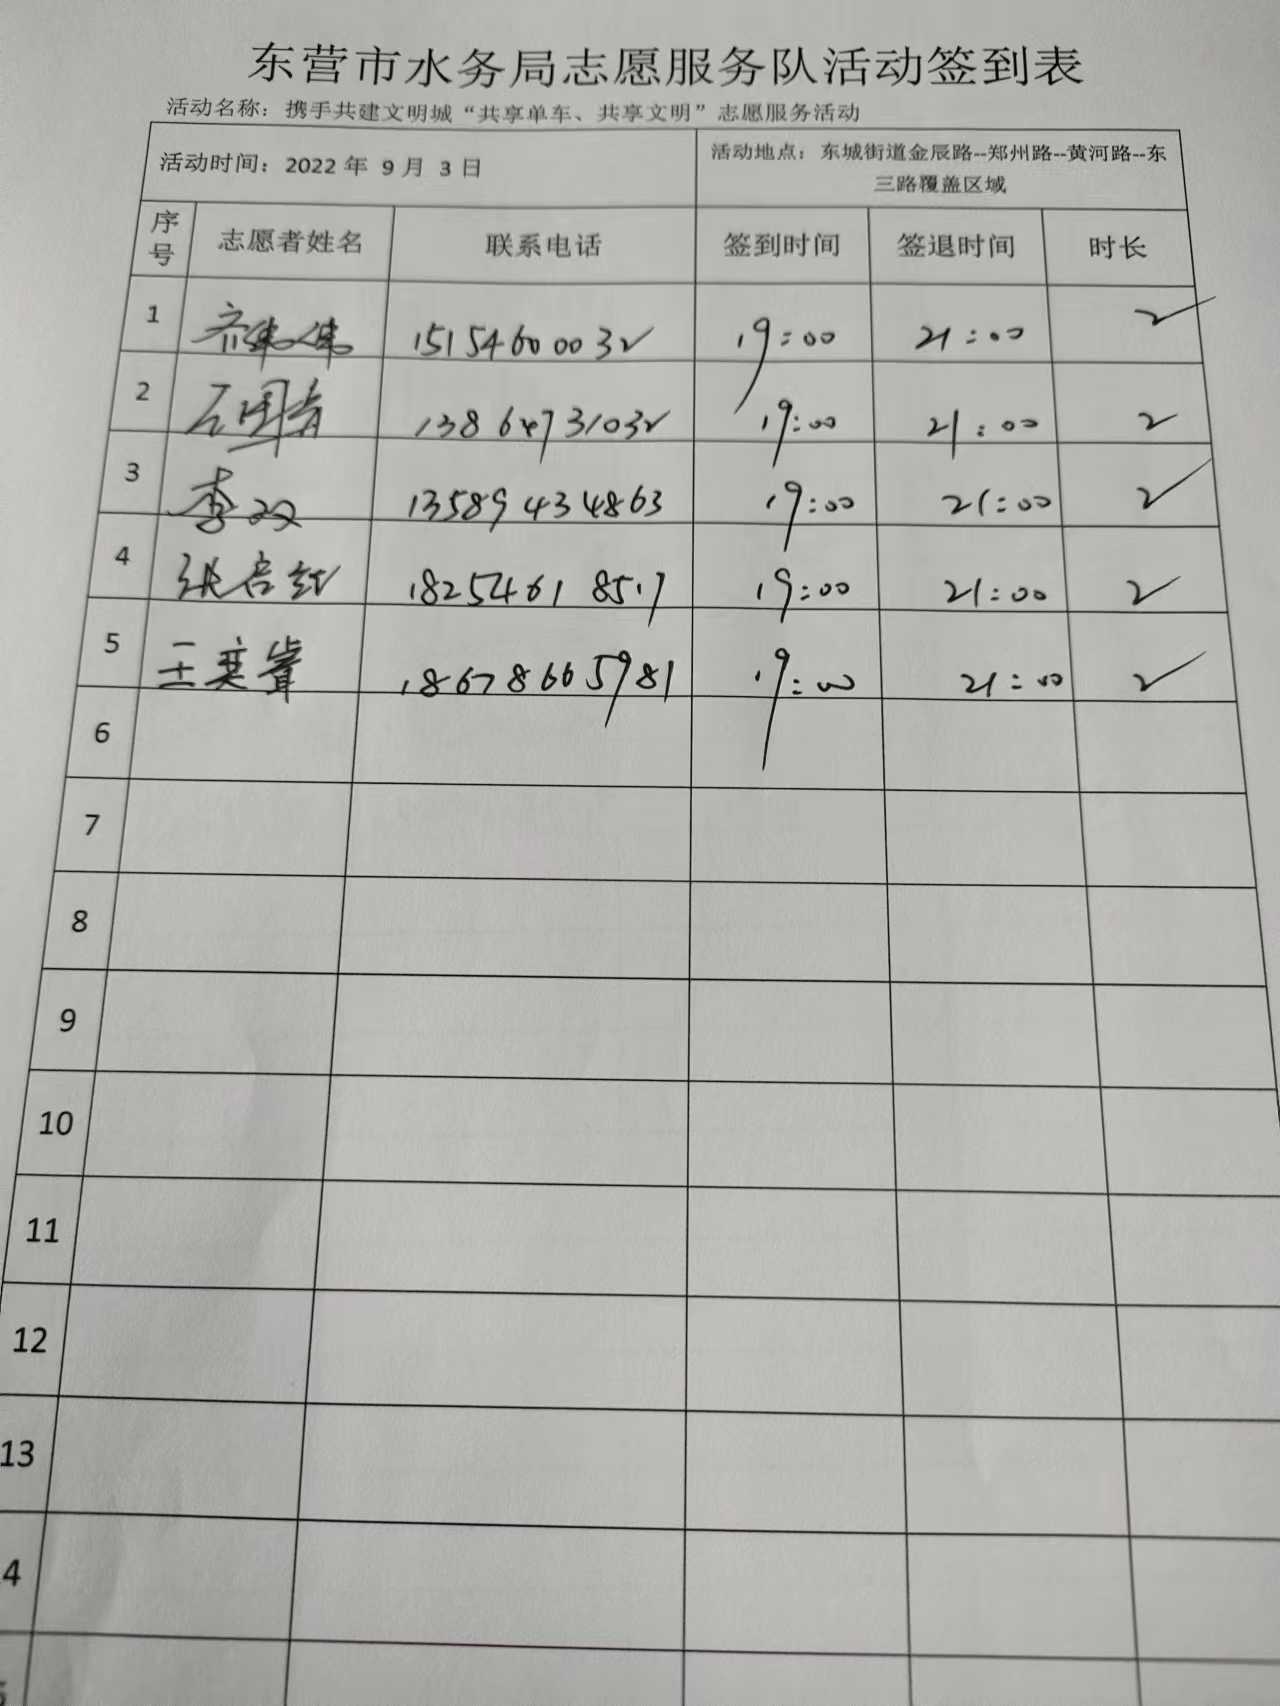 东营市水务局志愿服务队活动签到表
活动名称：携手共建文明城“共享单车、共享文明”志愿服务活动
活动时间：2022 年 9 月 3 日
活动地点：东城街道金辰路--郑州路--黄河路--东
三路覆盖区域
序号 志愿者姓名 联系电话 签到时间 签退时间 时长
1 齐健健 15154600032 19:00 21:00 2
2 石国青 13864731032 19:00 21:00 2
3 李双 13589434863 19:00 21:00 2
4 18254618517 19:00 21:00 2
5 王奕睿 18678665981 19:00 21:00 2
6
7
8
9
10
11
12
13
4